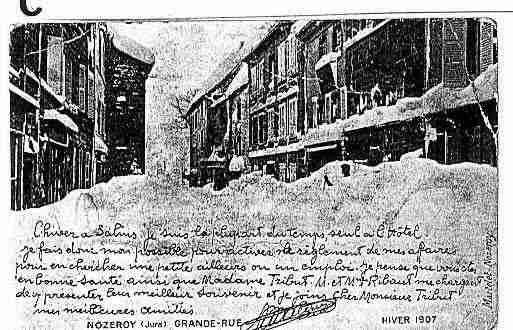 L'hiver a Salins, je suis la plupart du temps seul à l'Hôtel.
Je fais donc mon possible pour activer le règlement de mes affaires
pour en chercher une petite ailleurs ou un emploi. Je pense que vous êtes
en bonne santé ainsi que Madame Tribut. M. et Mme Ribaut me chargent
de vous présenter leur meilleur souvenir et je joins Cher Monsieur Tribut
mes meilleures amitiés
NOZEROY (Jura) GRANDE-RUE
HIVER 1907